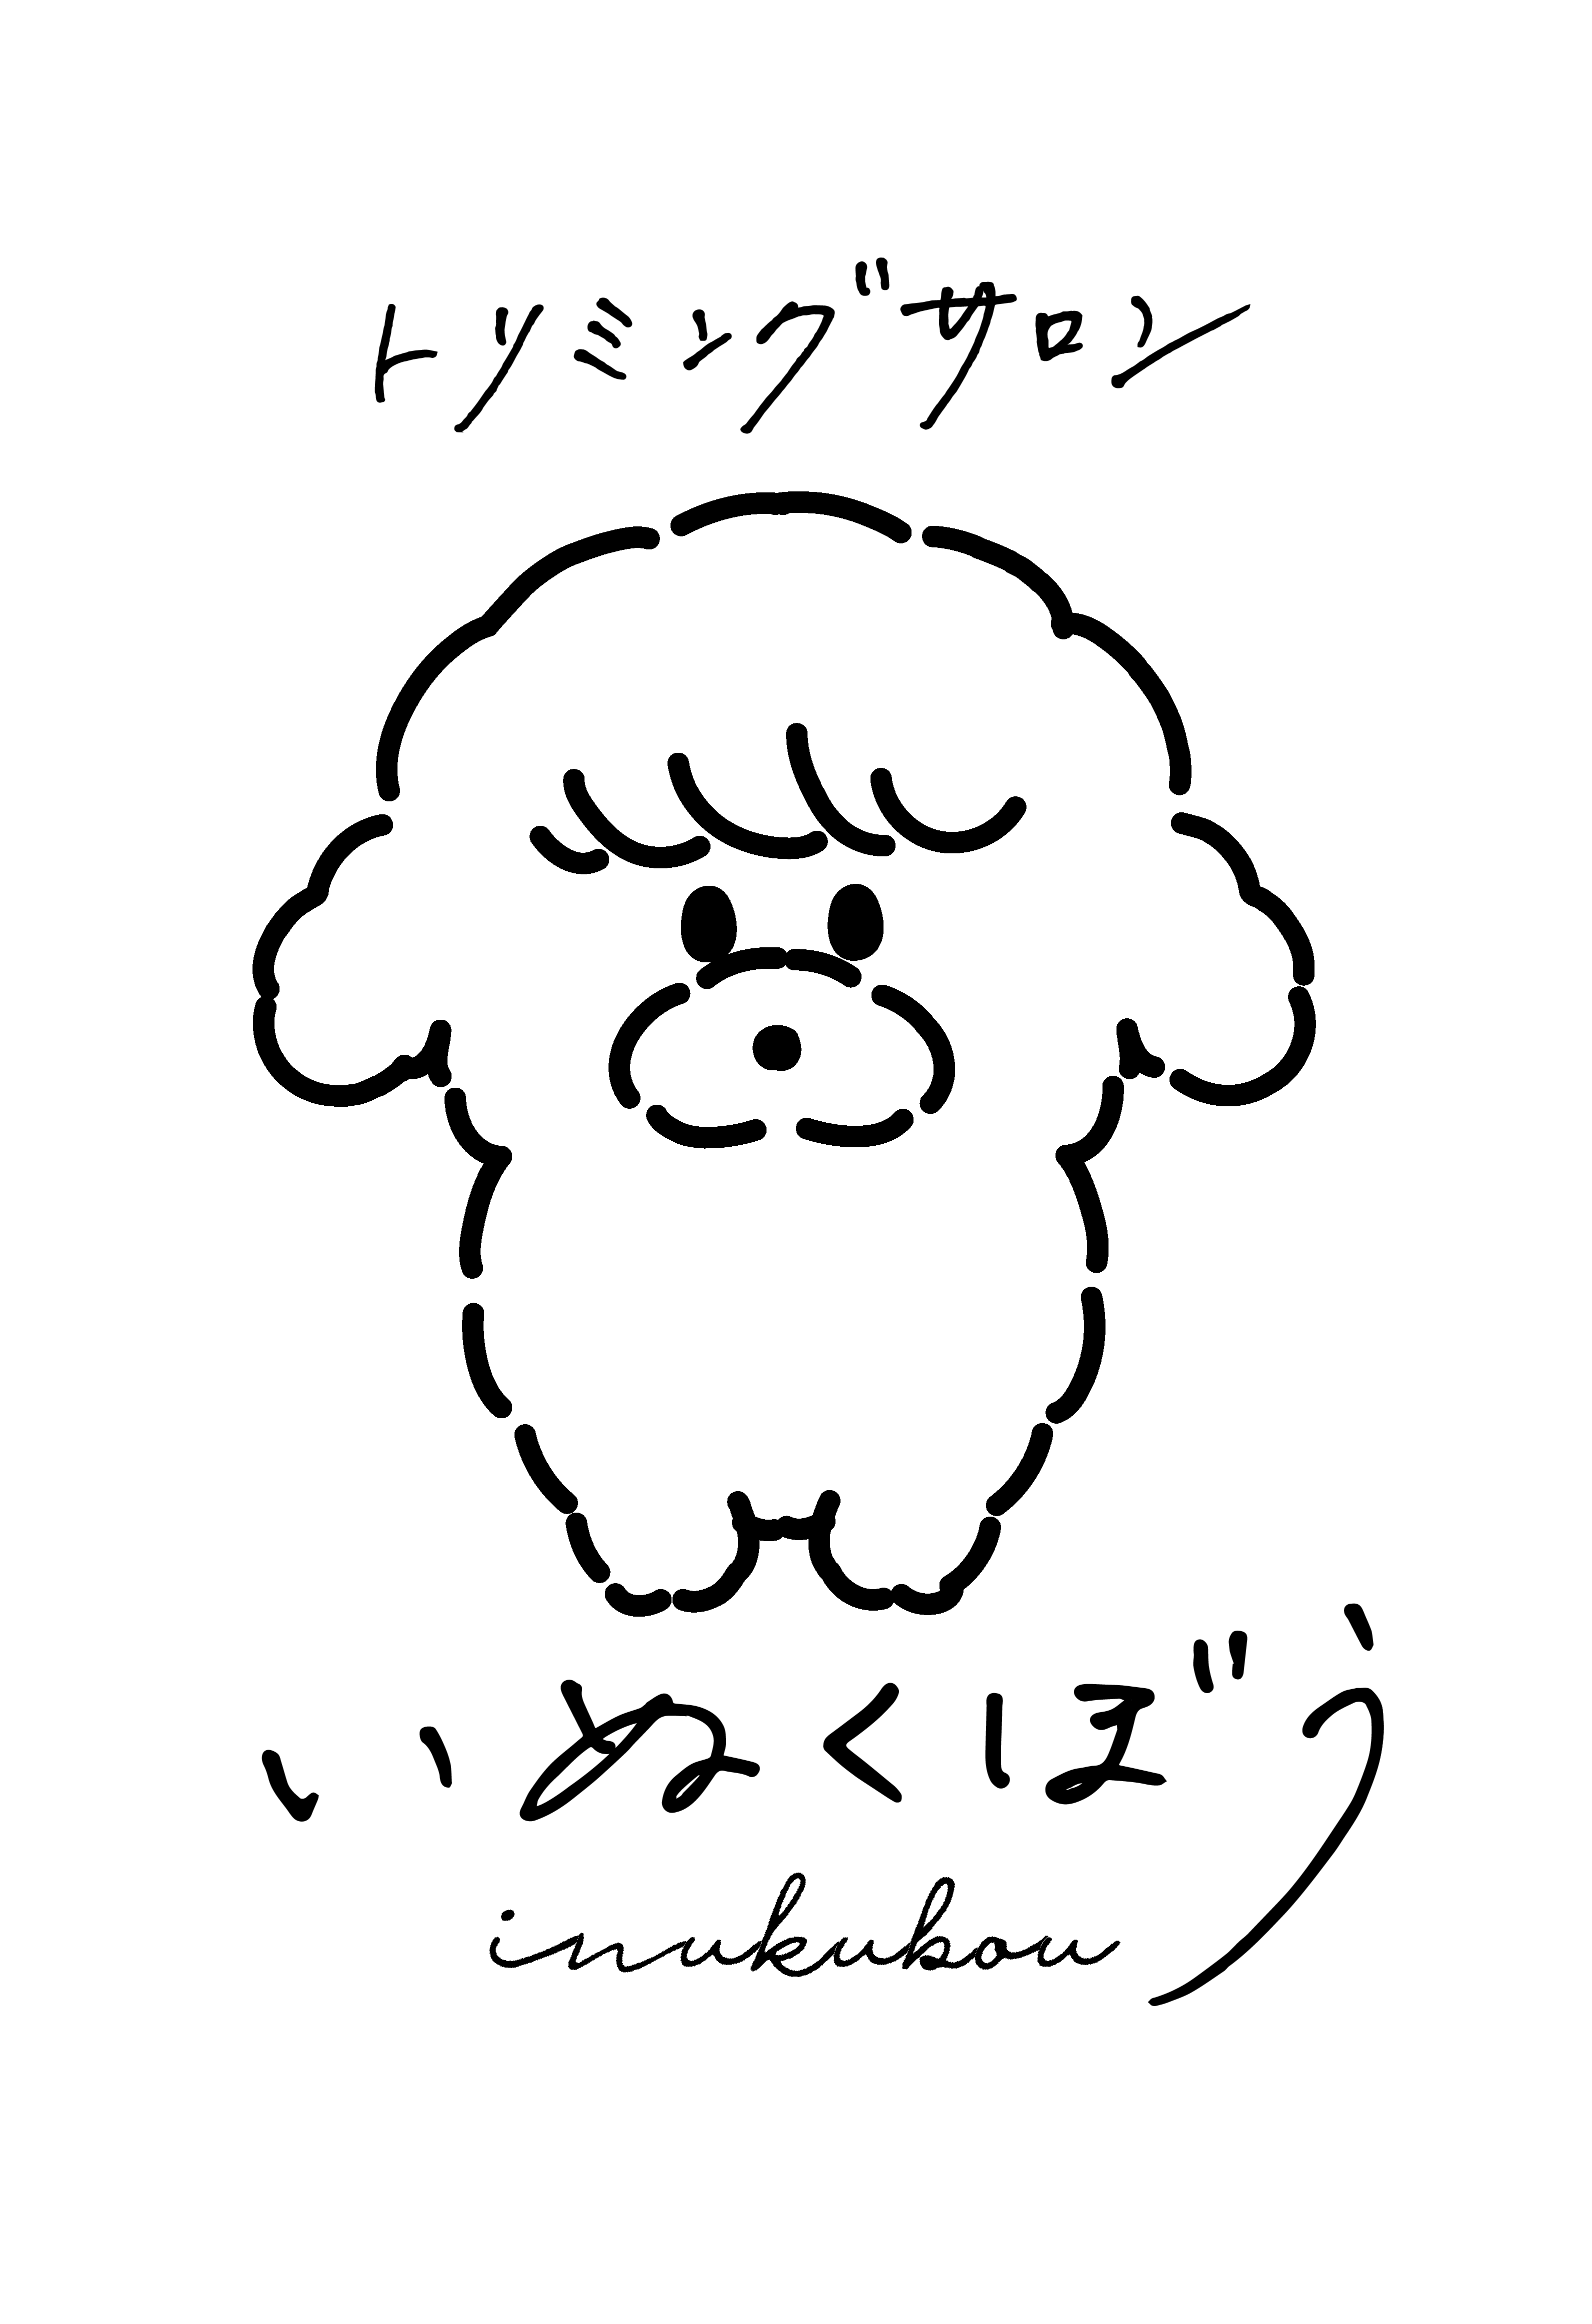 トリミングサロン
いぬくぼう
inukubou